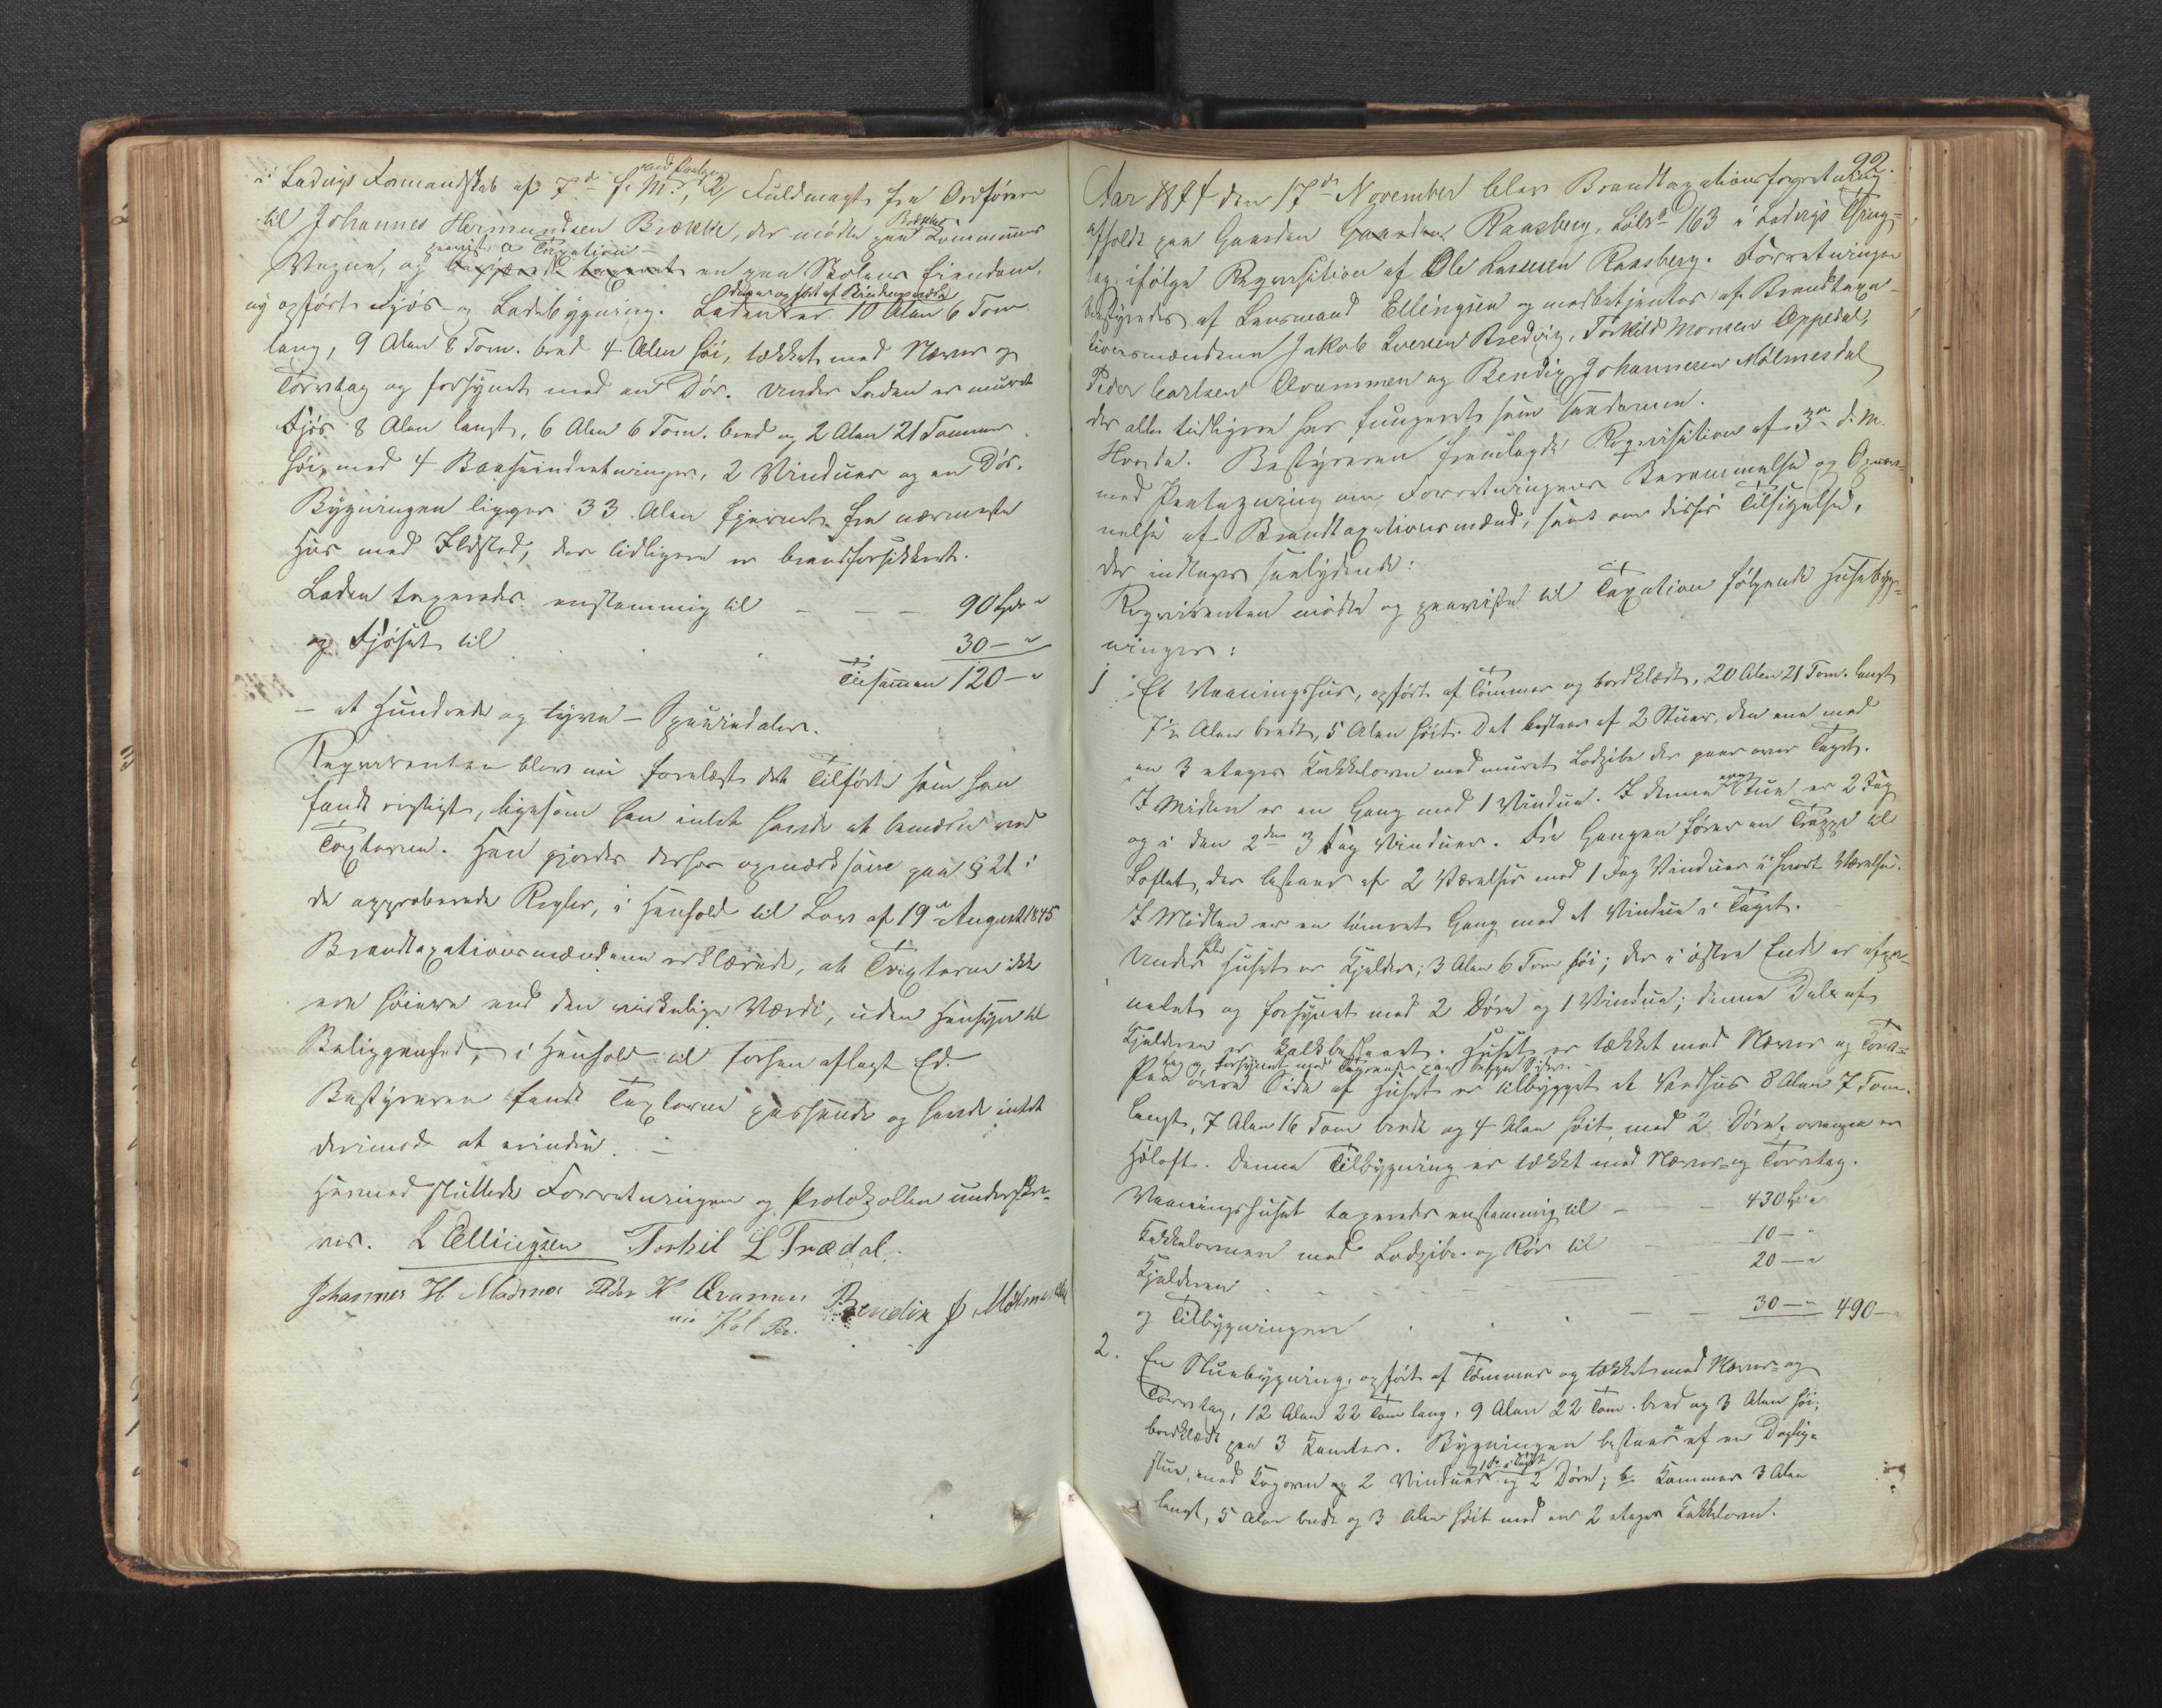 i Ladvigs Formandskab af 7de f. M., 2, Fuldmagt fra Ordføreren
til Johannes Hermundsen Brække, der mødte paa Kommunens
Vegne, og paaviste til Taxation en paa Skolens Eiendom
ny opført Fjøs- og Ladebygning. Laden er 10 Alen 6 Tom.
der er opført af Bindingsværk
lang, 9 Alen 8 Tom. bred 4 Alen høi, tækket med Næver og
Torvtag og forsynet med en Dør. Under Laden er muret
Fjøs 8 Alen langt, 6 Alen 6 Tom. bred og 2 Alen 21 Tommer
høi, med 4 Baaseindretninger, 2 Vinduer og en Dør.
Bygningen ligger 33 Alen fjernet fra nærmeste
Hus med Ildsted, der tidligere er brandforsikkert.
Laden taxeredes enstemmig til - - - 90 Spd "
og Fjøset til . . . 30 - "
Tilsammen 120 - "
- et Hundrede og tyve - Speciedaler.
Reqvirenten blev nu forelæst det Tilførte som han
fandt rigtigt, ligesom han intet havde at bemærke ved
Taxterne. Han gjordes derhos opmærksom paa § 21 i
de approberede Regler, i Henhold til Lov af 19de August 1845
Brandtaxationsmændene erklærede, at Taxterne ikke
ere høiere end den virkelige Værdi, uden Hensyn til
Beliggenhed, i Henhold til forhen aflagt Ed.
Bestyreren fandt Taxterne passende og havde intet
derimod at erindre. -
Hermed sluttede Forretningen og Protokollen underskre-
ves. L Ellingsen Torkil L Trædal.
Johannes H. Peder K Avamen Bendix J Mølmesdal
92.
Aar 1874 den 17de November blev Brandtaxationsforretning
afholdt paa Gaarden Gaarden Raasberg, Løbno 163 i Ladvigs Thing-
lag ifølge Reqvisition af Ole Lassesen Raasberg. Forretningen
bestyredes af Lensmand Ellingsen og medbetjentes af Brandtaxa-
tionsmændene Jakob Iversen Bredvig, Torkild Monsen Oppedal,
Peder Carlsen Avammen og Bendix Johannesen Mølmesdal
der alle tidligere har fungeret som saadanne.
Bestyreren fremlagde Reqvisition af 3die d. M.
med Paategning om Forretningens Berammelse og Opnæv-
nelse af Brandtaxationsmænd, samt om disses Tilsigelse,
der indtages saalydende:
Reqvirenten mødte og paaviste til Taxation følgende Husebyg-
ninger:
1 Et Vaaningshus, opført af Tømmer og bordklædt, 20 Alen 21 Tom. langt
7½ Alen bredt, 5 Alen høit. Det bestaar af 2 Stuer, den ene med
en 3 etages Kakkelovn med muret Lodpibe der gaar over Taget.
I Midten er en Gang med 1 Vindue. I denne Stue er 2 Fag
og i den 2den 3 Fag Vinduer. Fra Gangen fører en Trappe til
Loftet, der bestaar af 2 Værelser med 1 Fag Vinduer i hvert Værelse.
I Midten er en tømret Gang med et Vindue i Taget.
Under hele Huset er Kjelder, 3 Alen 6 Tom høi; der i østre Ende er afpa-
nelet og forsynet med 2 Døre og 1 Vindue; denne Del af
Kjelderen er kalkbesheert. Huset er tækket med Næver og Torv-
tag og forsynet med Tagrender paa begge Sider. -
Paa øvre Side af Huset er tilbygget et Vedhus 8 Alen 7 Tom.
langt, 7 Alen 16 Tom bredt og 4 Alen høit, med 2 Døre, ovenpaa er
Høloft. Denne Tilbygning er tækket med Næver- og Torvtag.
Vaaningshuset taxeredes enstemmig til - - 430 Spd "
Kakkelovnen med Lodpibe og Rør til - - 10 - "
Kjelderen . - - - - 20 - "
og Tilbygningen . . . - - 30 - " 490 - "
2. En Stuebygning, opført af Tømmer og tækket med Næver- og
Torvtag, 12 Alen 22 Tom lang, 9 Alen 22 Tom. bred og 3 Alen høi,
bordklædt paa 3 Kanter. Bygningen bestaar af en Daglig-
stue, med Bagerovn og 2 Vinduer og 1 do. i Taget og 2 Døre; b. Kammer 3 Alen
langt, 5 Alen bredt og 3 Alen høit med en 2 etages Kakkelovn.